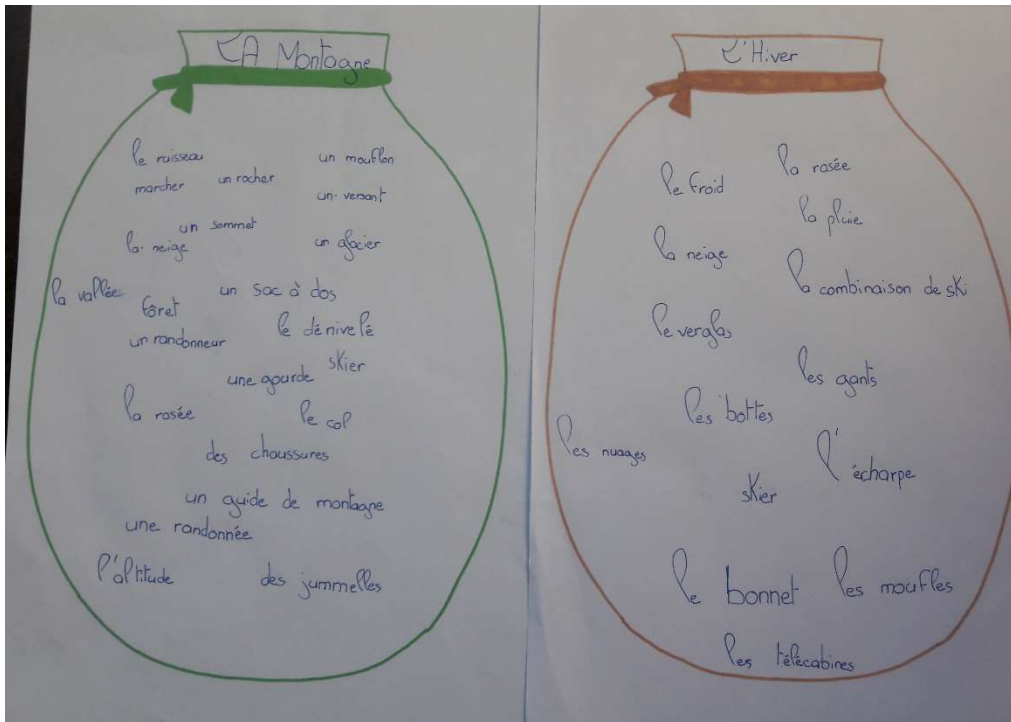 LA Montagne
le ruisseau
un mouflon
marcher
un rocher
un versant
un sommet
la neige
un glacier
la vallée
un sac à dos
fôret
le dénivelé
un randonneur
skier
une gourde
la rosée
le col
des chaussures
un guide de montagne
une randonnée
l'altitude
des jummelles
L'Hiver
la rosée
le froid
la pluie
la neige
la combinaison de ski
le verglas
les gants
les bottes
les nuages
l'écharpe
skier
le bonnet
les moufles
les télécabines